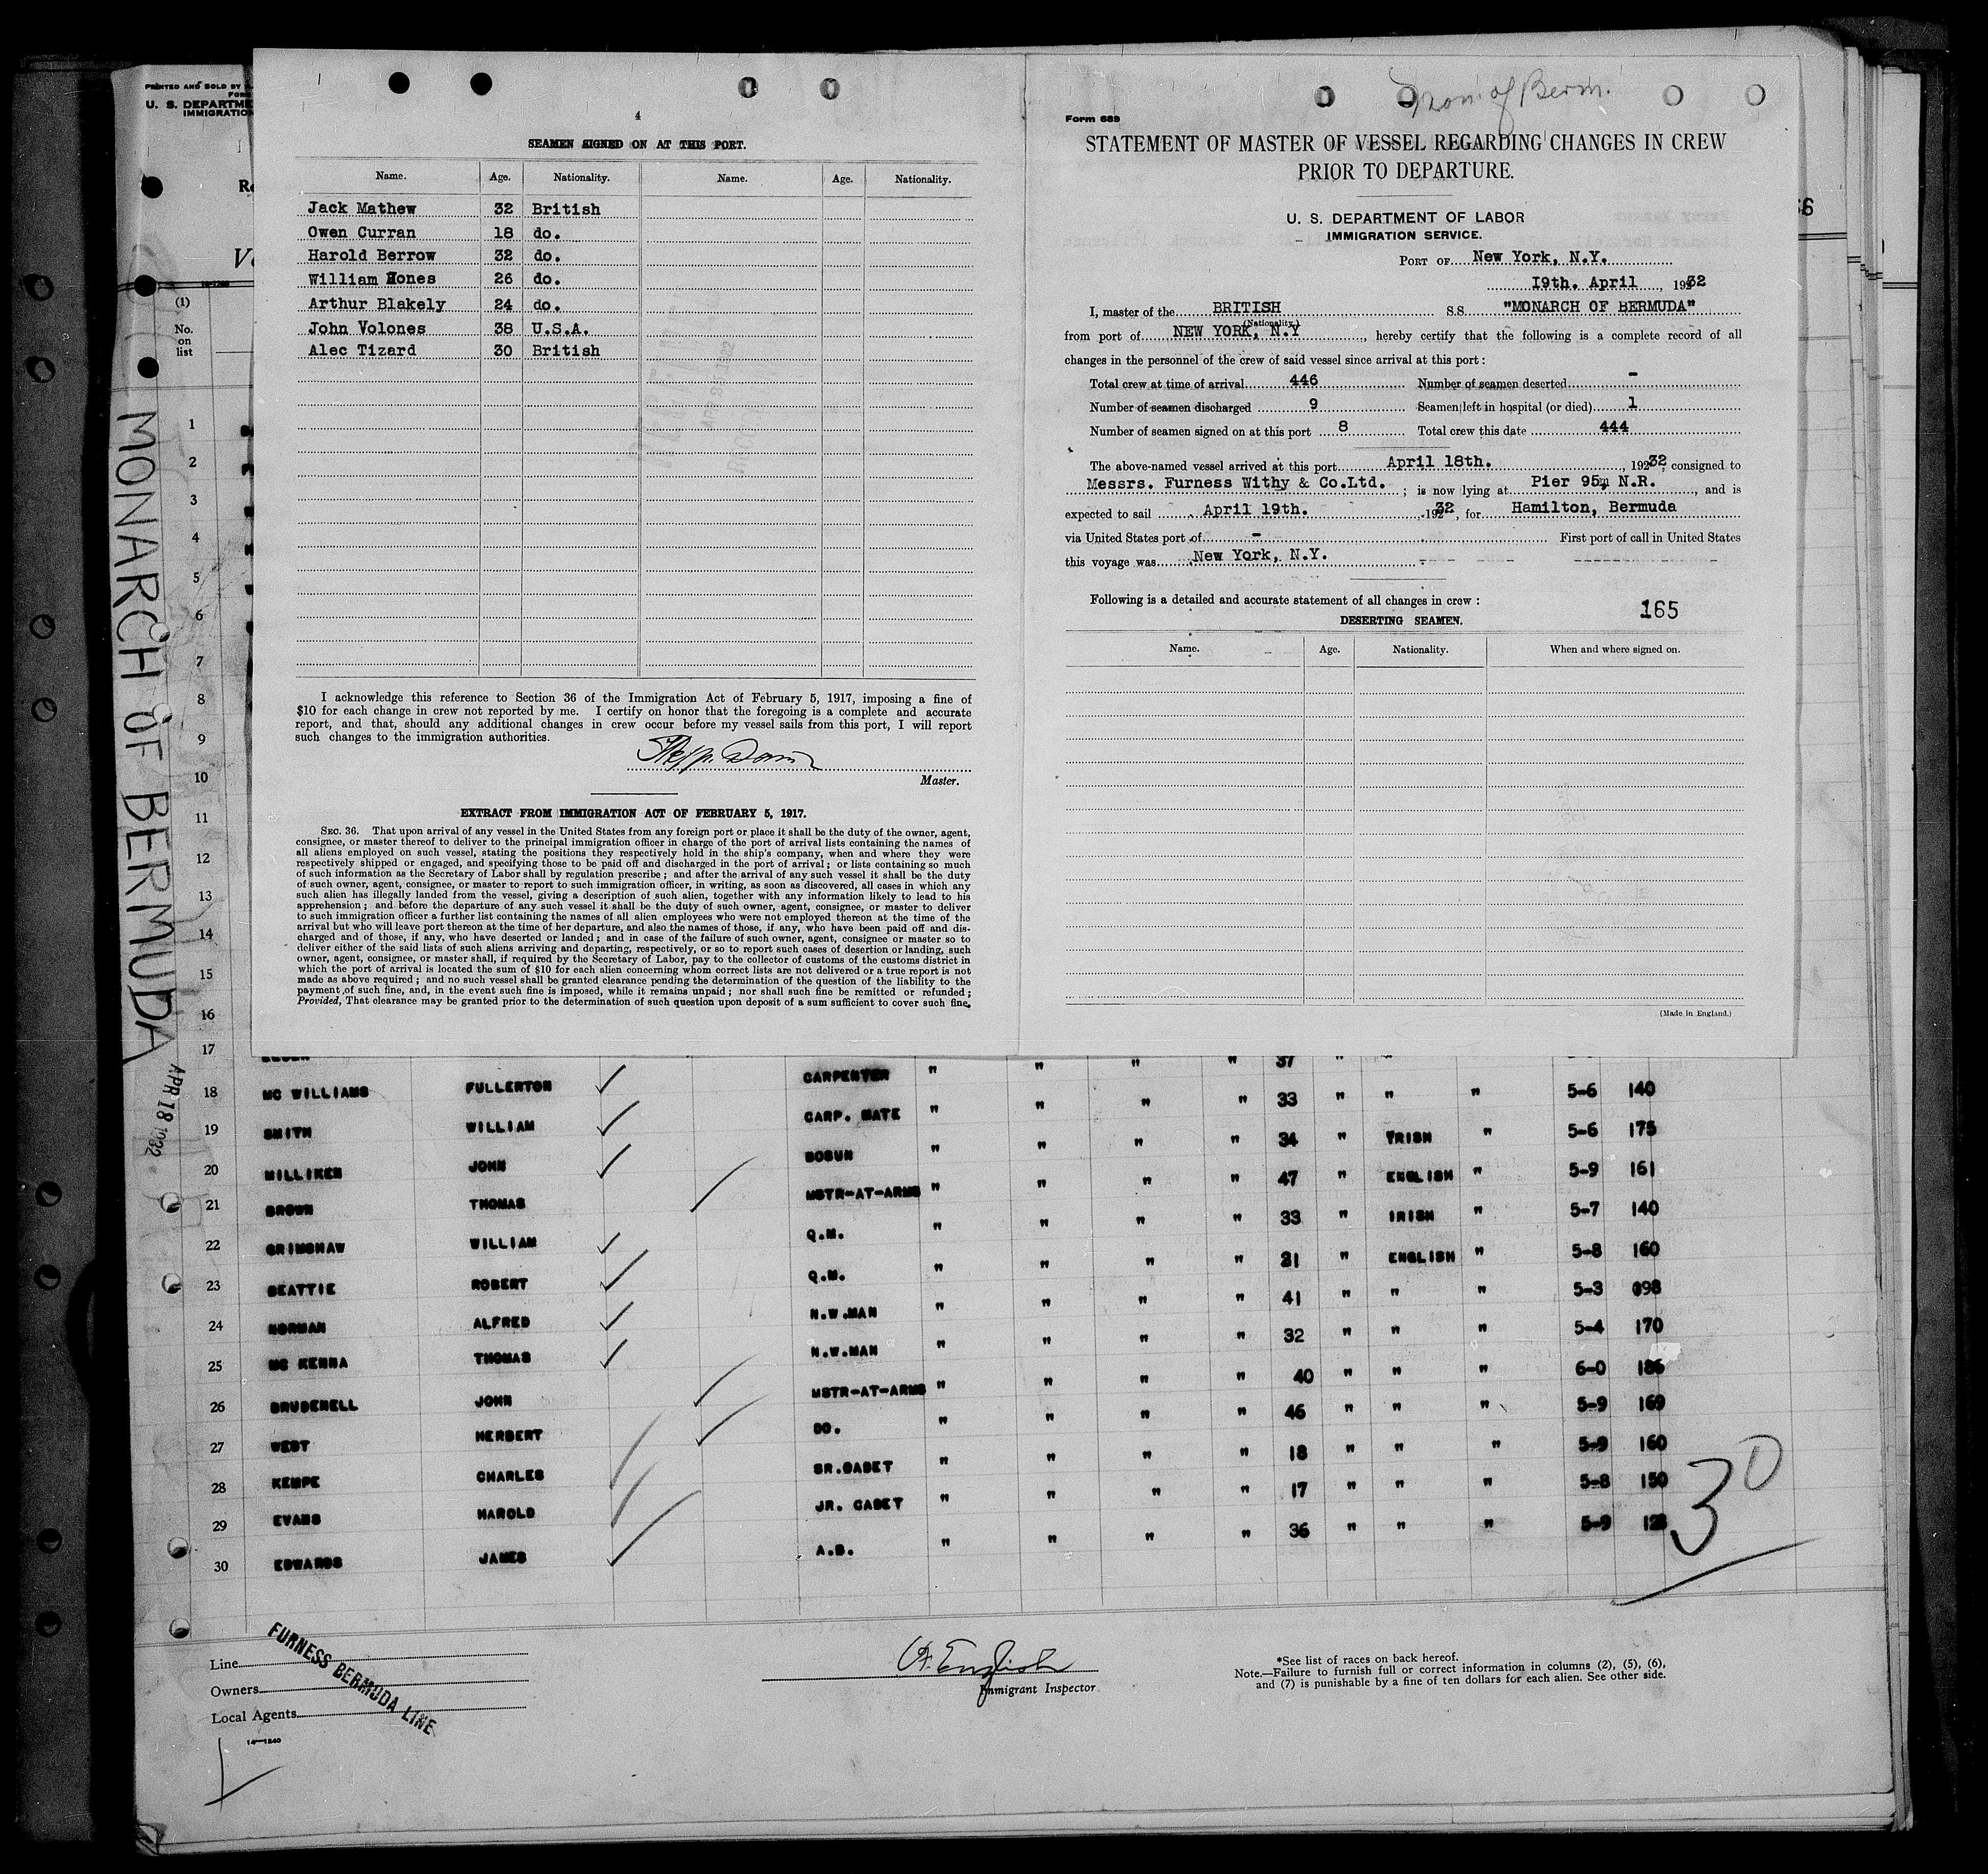 PRINTED AND SOLD BY
FORM
U. S. DEPARTME
IMMIGRATION
(1)
No.
on
list
MONARCH OF BERMUDA
APR 18 1932
4
SEAMEN SIGNED ON AT THIS PORT.
Name. Age. Nationality. Name. Age. Nationality.
Jack Mathew 32 British
Owen Curran 18 do.
Harold Berrow 32 do.
William Hones 26 do.
Arthur Blakely 24 do.
John Volones 38 U.S.A.
Alec Tizard 30 British
I acknowledge this reference to Section 36 of the Immigration Act of February 5, 1917, imposing a fine of
$10 for each change in crew not reported by me. I certify on honor that the foregoing is a complete and accurate
report, and that, should any additional changes in crew occur before my vessel sails from this port, I will report
such changes to the immigration authorities.
Master.
EXTRACT FROM IMMIGRATION ACT OF FEBRUARY 5, 1917.
SEC. 36. That upon arrival of any vessel in the United States from any foreign port or place it shall be the duty of the owner, agent,
consignee, or master thereof to deliver to the principal immigration officer in charge of the port of arrival lists containing the names of
all aliens employed on such vessel, stating the positions they respectively hold in the ship's company, when and where they were
respectively shipped or engaged, and specifying those to be paid off and discharged in the port of arrival; or lists containing so much
of such information as the Secretary of Labor shall by regulation prescribe; and after the arrival of any such vessel it shall be the duty
of such owner, agent, consignee, or master to report to such immigration officer, in writing, as soon as discovered, all cases in which any
such alien has illegally landed from the vessel, giving a description of such alien, together with any information likely to lead to his
apprehension; and before the departure of any such vessel it shall be the duty of such owner, agent, consignee, or master to deliver
to such immigration officer a further list containing the names of all alien employees who were not employed thereon at the time of the
arrival but who will leave port thereon at the time of her departure, and also the names of those, if any, who have been paid off and dis-
charged and of those, if any, who have deserted or landed; and in case of the failure of such owner, agent, consignee or master so to
deliver either of the said lists of such aliens arriving and departing, respectively, or so to report such cases of desertion or landing, such
owner, agent, consignee, or master shall, if required by the Secretary of Labor, pay to the collector of customs of the customs district in
which the port of arrival is located the sum of $10 for each alien concerning whom correct lists are not delivered or a true report is not
made as above required; and no such vessel shall be granted clearance pending the determination of the question of the liability to the
payment of such fine, and, in the event such fine is imposed, while it remains unpaid; nor shall such fine be remitted or refunded;
Provided, That clearance may be granted prior to the determination of such question upon deposit of a sum sufficient to cover such fine.
Mon. of Berm.
Form 689
STATEMENT OF MASTER OF VESSEL REGARDING CHANGES IN CREW
PRIOR TO DEPARTURE.
U. S. DEPARTMENT OF LABOR
IMMIGRATION SERVICE.
PORT OF New York, N.Y.
19th. April, 1932
I, master of the BRITISH S.S. "MONARCH OF BERMUDA"
(Nationality.)
from port of NEW YORK, N.Y, hereby certify that the following is a complete record of all
changes in the personnel of the crew of said vessel since arrival at this port:
Total crew at time of arrival 446 Number of seamen deserted -
Number of seamen discharged 9 Seamen left in hospital (or died) 1
Number of seamen signed on at this port 8 Total crew this date 444
The above-named vessel arrived at this port April 18th., 1932, consigned to
Messrs. Furness Withy & Co.Ltd.; is now lying at Pier 95, N.R., and is
expected to sail April 19th. 1932, for Hamilton, Bermuda
via United States port of - First port of call in United States
this voyage was New York, N.Y.
Following is a detailed and accurate statement of all changes in crew:
165
DESERTING SEAMEN.
Name. Age. Nationality. When and where signed on.
(Made in England.)
1
2
3
4
5
6
7
8
9
10
11
12
13
14
15
16
17 " " " " 37 "
18 MC WILLIAMS FULLERTON CARPENTER " " " " 33 " " " 5-6 140
19 SMITH WILLIAM CARP. MATE " " " " 34 " IRISH " 5-6 175
20 MILLIKEN JOHN BOSUN " " " " 47 " ENGLISH " 5-9 161
21 BROWN THOMAS MSTR-AT-ARMS " " " " 33 " IRISH " 5-7 140
22 GRIMSHAW WILLIAM Q.M. " " " " 31 " ENGLISH " 5-8 160
23 BEATTIE ROBERT Q.M. " " " " 41 " " " 5-3 098
24 NORMAN ALFRED N.W.MAN " " " " 32 " " " 5-4 170
25 MC KENNA THOMAS N.W.MAN " " " " 40 " " " 6-0 186
26 BRUDENELL JOHN MSTR-AT-ARMS " " " " 46 " " " 5-9 169
27 WEST HERBERT DO. " " " " 18 " " " 5-9 160
28 KEMPE CHARLES SR.CADET " " " " 17 " " " 5-8 150
29 EVANS HAROLD JR. CADET " " " " 36 " " " 5-9 128
30 EDWARDS JAMES A.B. " " "
30
Line
Owners
Local Agents
FURNESS BERMUDA LINE
14-1240
English
Immigrant Inspector
*See list of races on back hereof.
Note.—Failure to furnish full or correct information in columns (2), (5), (6),
and (7) is punishable by a fine of ten dollars for each alien. See other side.